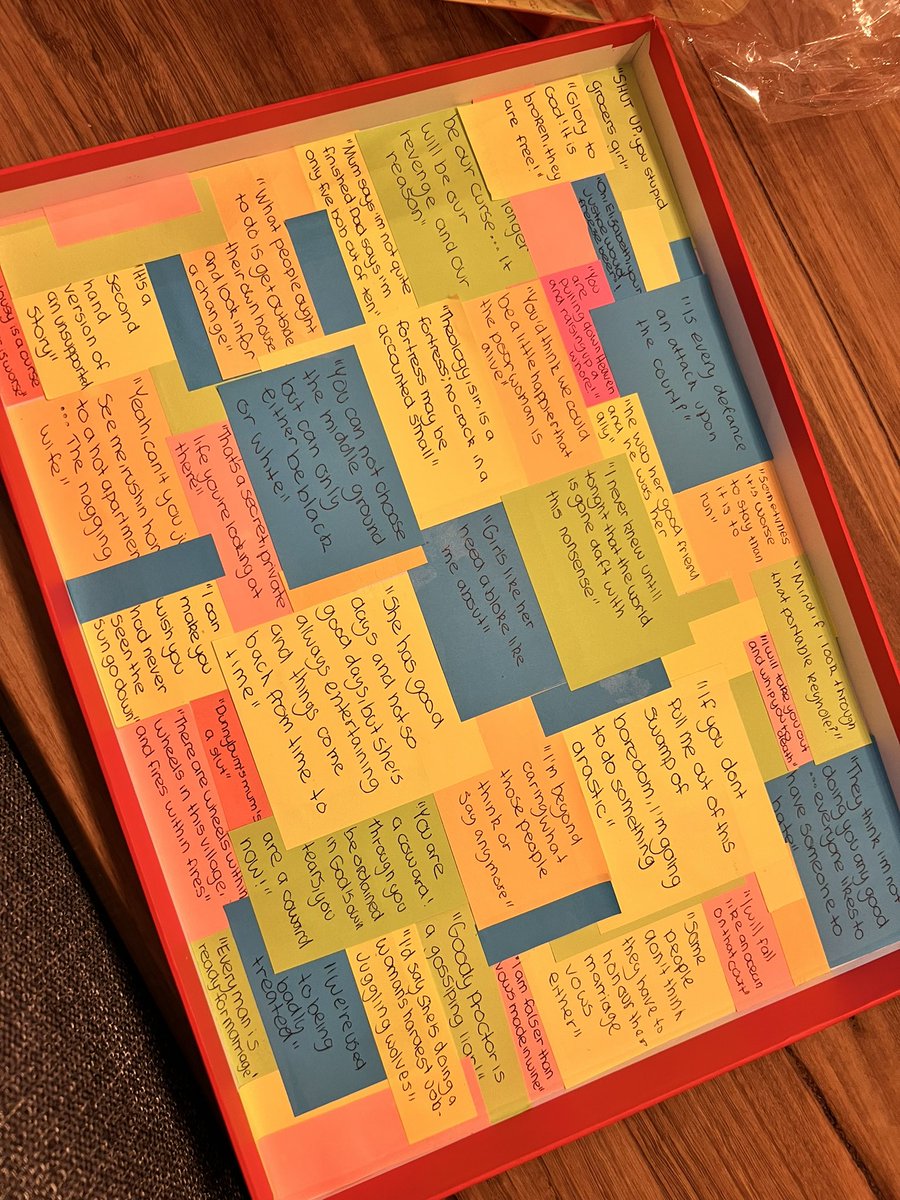 "SHUT UP, you stupid
grocers girl"
"Glory to
God! it is
broken, they
are free!"
longer
be our curse.... it
will be our
revenge and our
reason
"Mum says i'm not quite
finished, Dad says i'm
only five bob out of ten"
"What people ought
to do is get outside
their own house
and look in for
a change"
second
hand
version of
an unsupported
story"
is a curse
"Oh, Elizabeth your
justice would
freeze beer"
"You
are
pulling down Heaven
and raising up a whore!"
"Is every defence
an attack upon
the court?"
"You'd think we could
be a little happier that
the poor woman is
alive"
"Theology sir, is a
fortress; no crack in a
fortress may be
accounted small"
"You can not choose
the middle ground
but can only
either be black
or white"
"Yeah, can't you just
see me rushin home
to a hot apartment
... The nagging
wife"
That's a secret private
life you're looking at
there"
he was her good friend
and she was her
ally"
"sometimes
it is worse
to stay than
it is to
run"
"I never knew until
tonight that the world
is gone daft with
this nonsense"
"Girls like her
need a bloke like
me about"
"Mind if i look through
that portable keyhole?"
"I will take you out
and whip your death"
"I can
make you
wish you
had never
seen the
sun go down"
"She has good
days and not so
good days, but she's
always entertaining
and things come
back from time to
time"
"Bunnybum's mum is
a slut"
"There are wheels within
wheels in this village,
and fires within fires"
"If you don't
pull me out of this
swamp of
boredom, i'm going
to do something
drastic"
"They think i'm not
doing you any good
... everyone likes to
have someone to
hate"
"I'm beyond
caring what
those people
think or
say anymore"
"You are
a coward!
though you
be ordained
in God's own
tears, you
are a coward
now!"
"I will fall
like an ocean
on that court"
"some
people
don't think
they have to
honour their
marriage
vows
either"
"I am falser than
vows made in wine"
"Goody Proctor is
a gossiping liar!"
"I'd say she's doing a
woman's hardest job-
juggling wolves"
"We're used
to being
badly
treated"
"Every man is
ready for marriage"